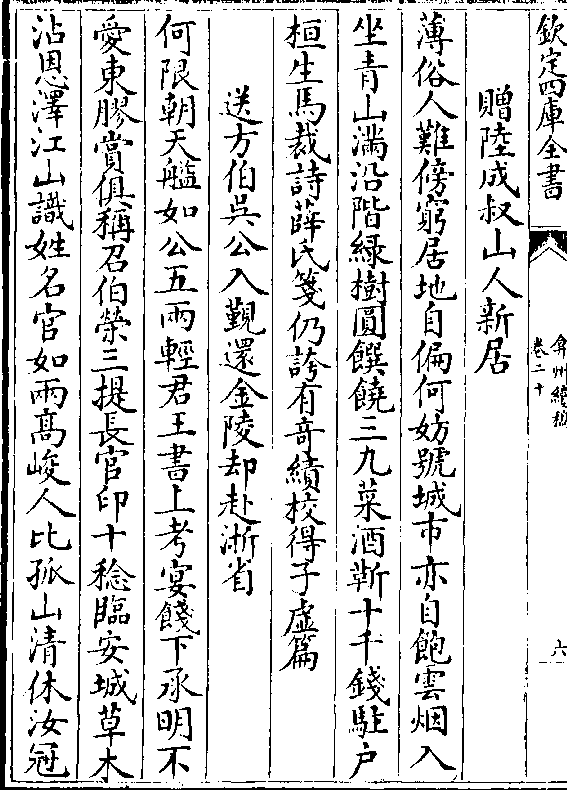 欽定四庫全書
弇州續稿
卷二十
六
贈陸成叔山人新居
薄俗人難傍窮居地自偏何妨號城市亦自飽雲烟入
坐青山滿沿階綠樹圓饌饒三九菜酒靳十千錢駐戶
桓生馬裁詩薛氏箋仍誇有奇績校得子虛篇
送方伯吳公入覲還金陵却赴浙省
何限朝天艦如公五兩輕君王書上考宴餞下承明不
愛東膠賞俱稱召伯榮三提長官印十稔臨安城草木
沾恩澤江山識姓名官如兩高峻人比孤山清休汝冠